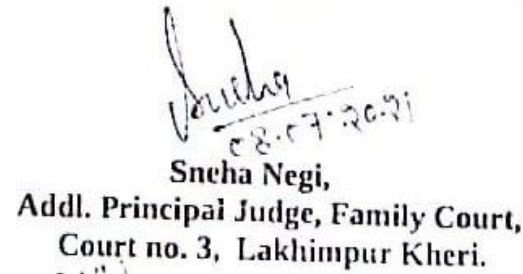 Sneha
08.07.2021
Sneha Negi,
Addl. Principal Judge, Family Court,
Court no. 3, Lakhimpur Kheri.